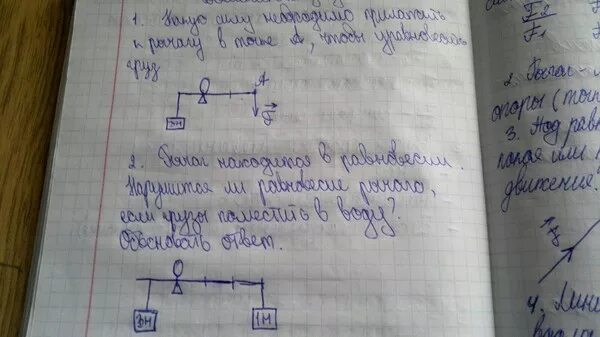 1. Какую силу необходимо приложить
к рычагу в точке А, чтобы уравновесить
груз
А
F
3Н
2. Рычаг находится в равновесии.
Нарушится ли равновесие рычага,
если грузы поместить в воду?
Обосновать ответ.
3Н
1Н
F2
F1
2. Рычаг -
опоры (точ
3. Под рав
пон или
движение?
F
4. Лин